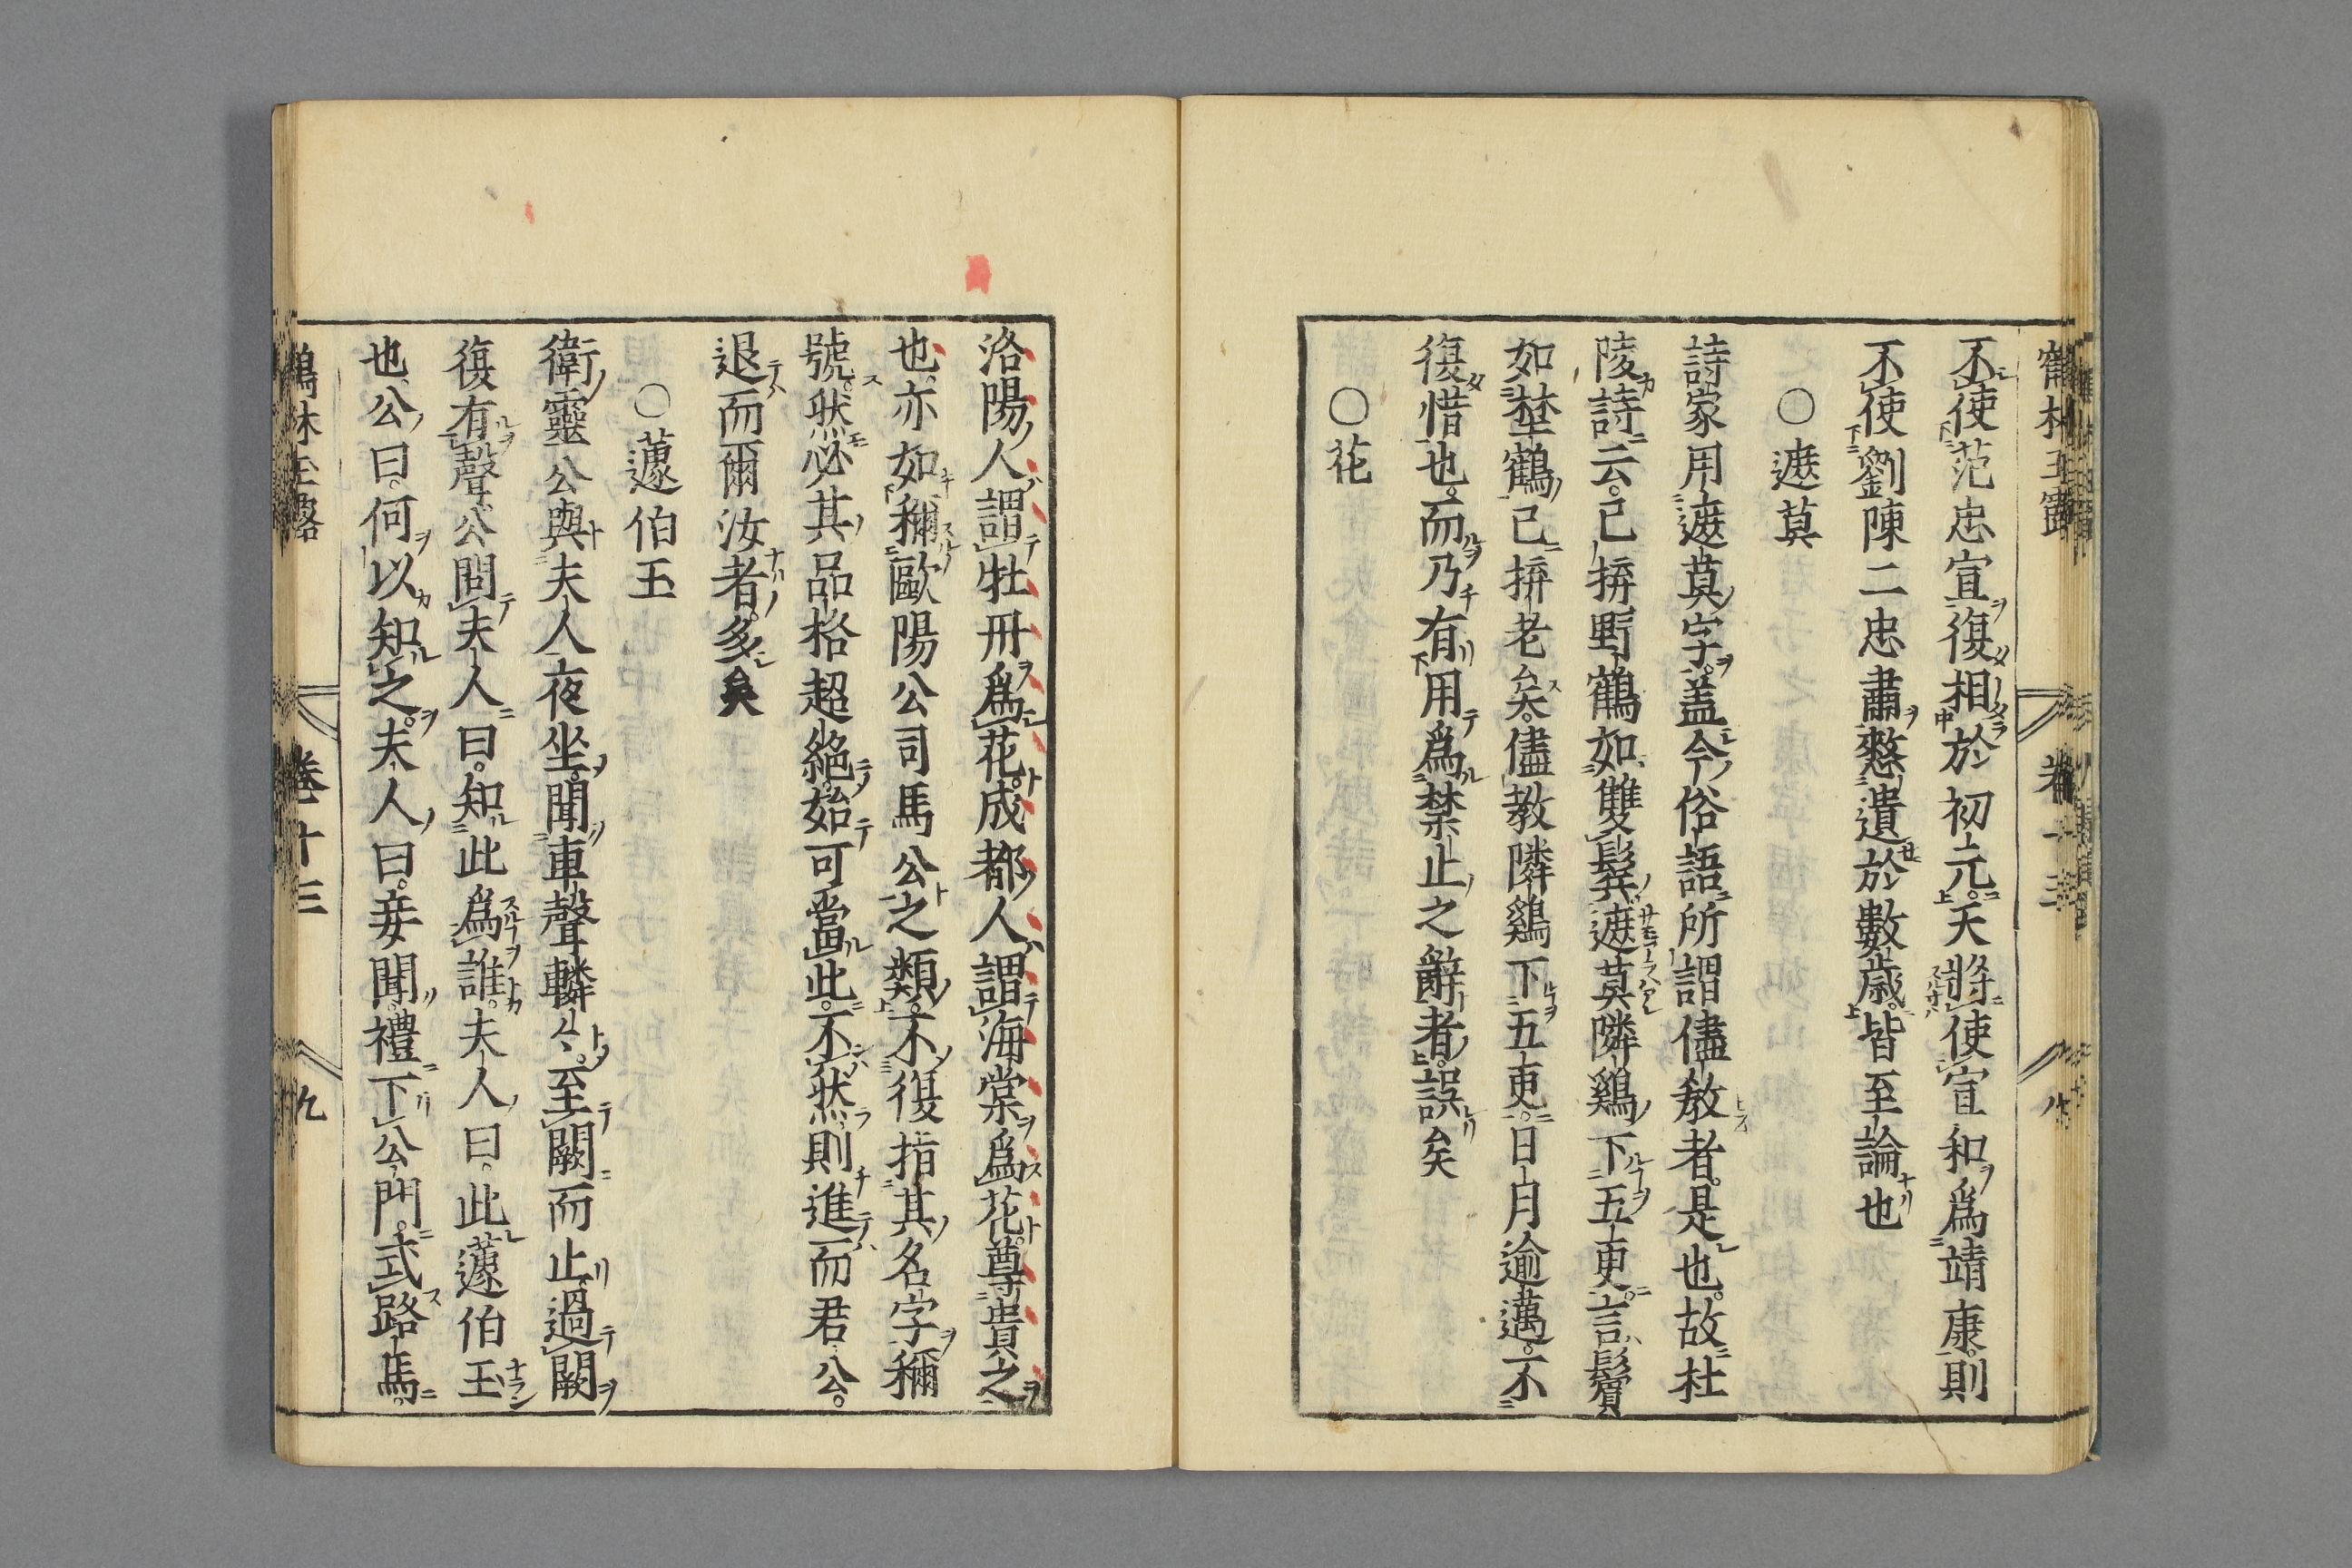 鶴林玉露　卷十三　八
不使范忠宣復相於初元。天將使宣和為靖康。則
不使劉陳二忠肅憖遺於數歲。皆至論也
○遮莫
詩家用遮莫字。盖今俗語所謂儘敎者。是也。故杜
陵詩云。已拚野鶴如雙鬂。遮莫隣鷄下五更。言鬢
如埜鶴。已拚老矣。儘教隣鷄下五更。日月逾邁。不
復惜也。而乃有用為禁止之辭者。誤矣
○花
洛陽人謂牡丹爲花。成都人謂海棠爲花。尊貴之
也。亦如稱歐陽公司馬公之類。不復指其名字稱
號。然必其品格超絶。始可當此。不然則進而君公。
退而爾汝者。多矣
○蘧伯玉
衛靈公與夫人夜坐。聞車聲轔〻。至闕而止。過闕
復有聲。公問夫人曰。知此爲誰。夫人曰。此蘧伯玉
也。公曰。何以知之。夫人曰。妾聞。禮下公門。式路馬。
鶴林玉露　卷十三　九